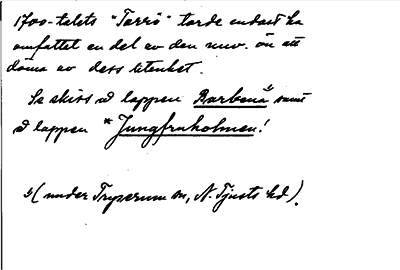 1700-talets "Tärrö" torde endast ha
omfattat en del av den nuv. ön att
döma av dess litenhet.
Se skiss å lappen Barbenäs samt
å lappen *Jungfruholmen!
(under Tryserum sn, N. Tjusts hd).